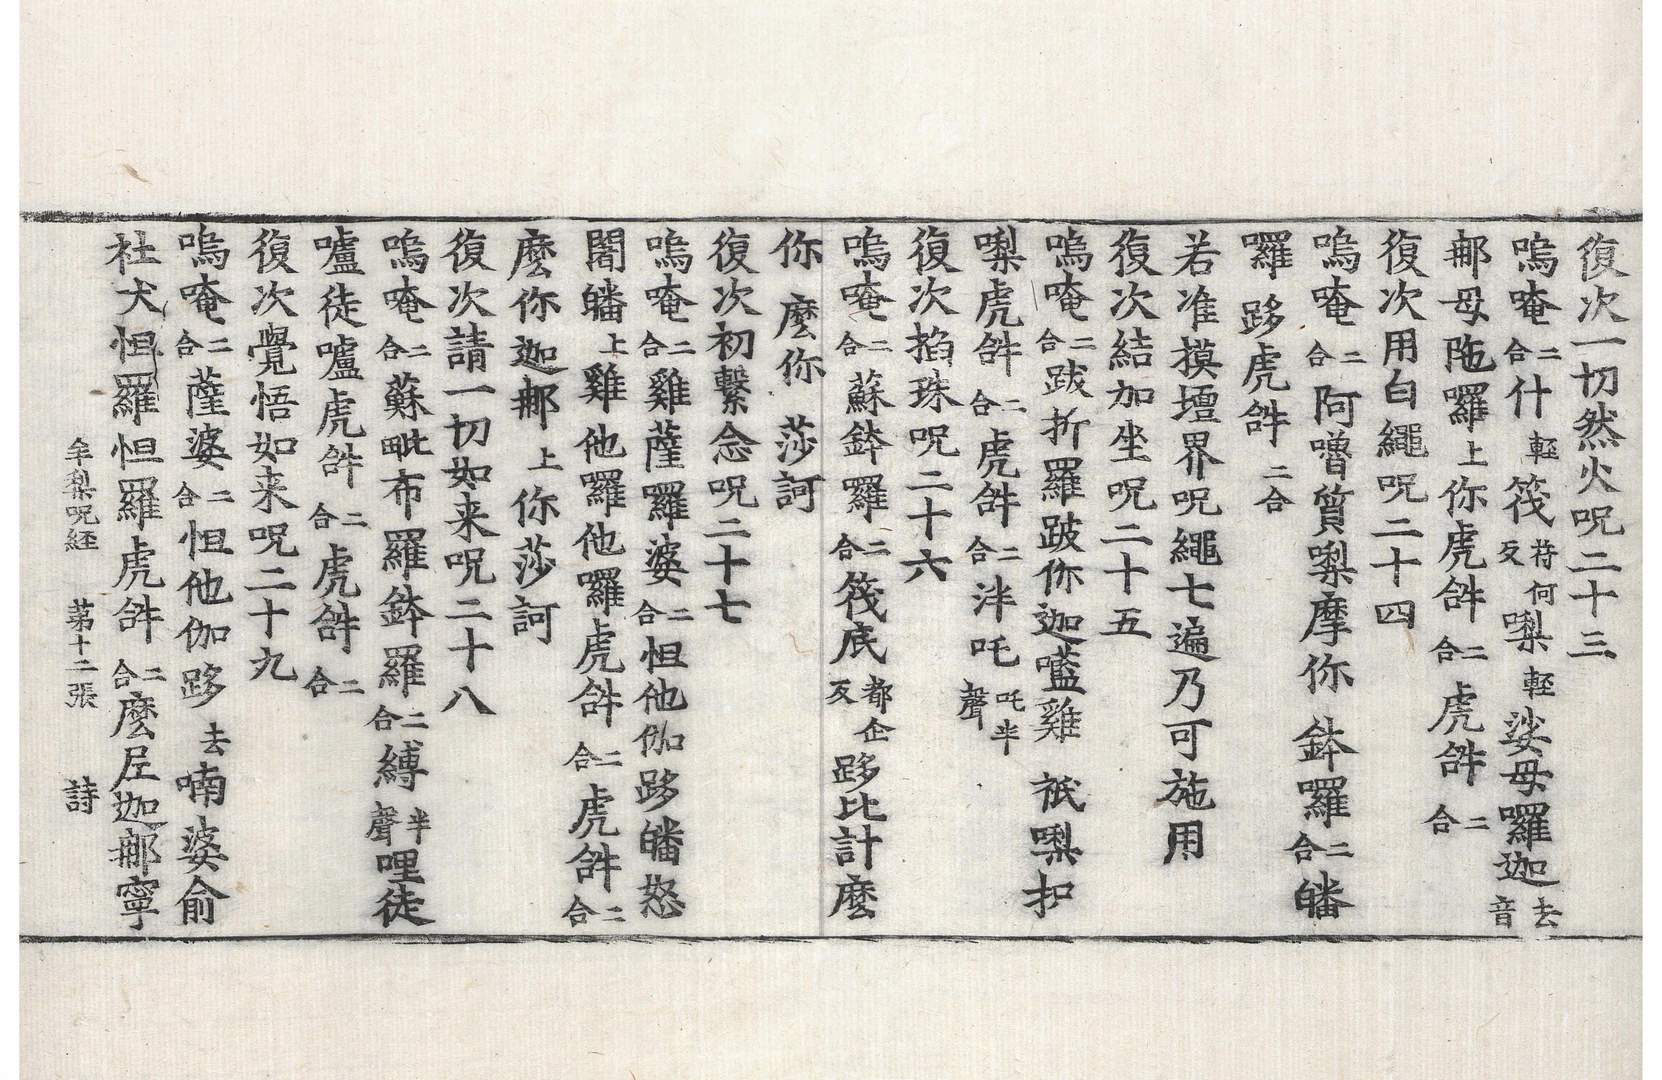 復次一切然火呪二十三
嗚唵二合什輕筏苻何反㗚輕娑母囉迦去音
那母陁囉上你虎𤙖二合虎𤙖二合
復次用白繩呪二十四
嗚唵二合阿嚕質㗚摩你鉢囉二合皤
囉跢虎𤙖二合
若准摸壇界呪繩七遍乃可施用
復次結加坐呪二十五
嗚唵二合跋折羅跛你迦㘕雞祇㗚扣
㗚虎𤙖二合虎𤙖二合泮吒吒半聲
復次掐珠呪二十六
嗚唵二合蘇鉢羅二合筏底都企反跢比計麼
你麼你莎訶
復次初繫念呪二十七
嗚唵二合雞薩羅婆二合怛他伽跢皤怒
闍皤上雞他囉他囉虎𤙖二合虎𤙖二合
麼你迦那上你莎訶
復次請一切如来呪二十八
嗚唵二合蘇毗布羅鉢羅二合縛半聲哩徒
嚧徒嚧虎𤙖二合虎𤙖二合
復次覺悟如来呪二十九
嗚唵二合薩婆二合怛他伽跢去喃婆俞
社犬怛羅怛羅虎𤙖二合麼㞐迦那寧
牟梨呪経 苐十二張 詩